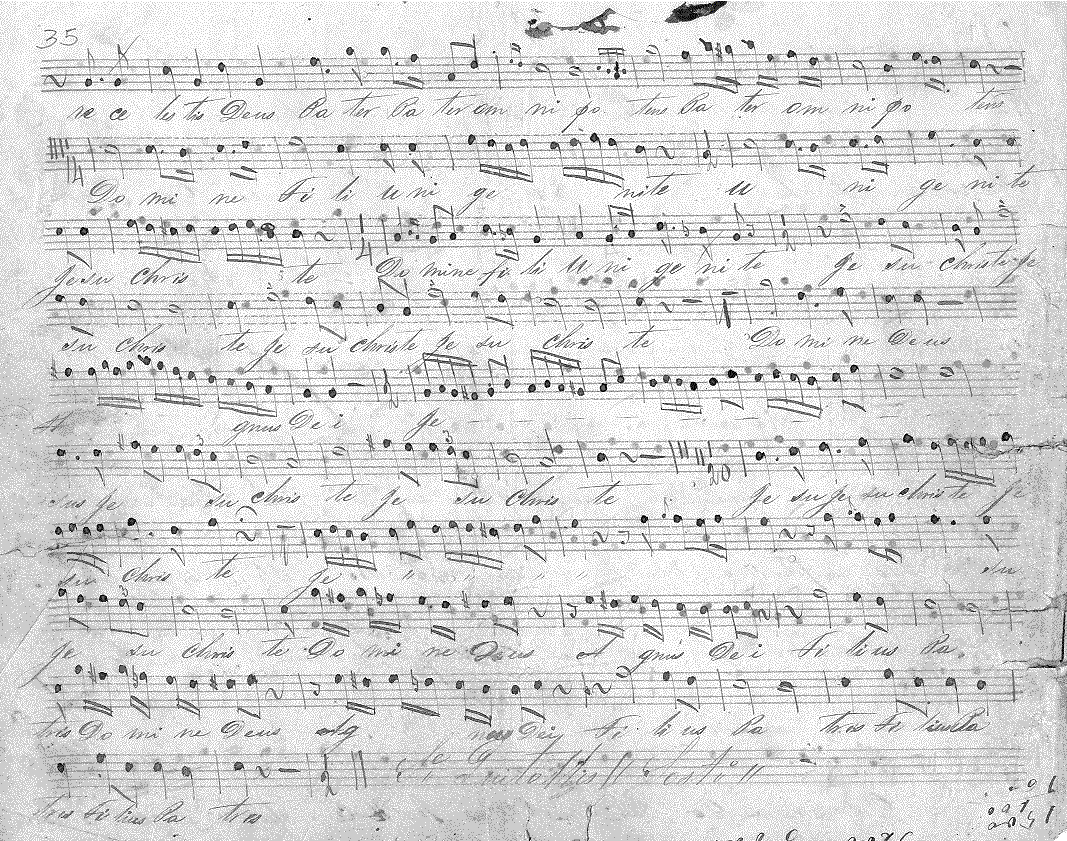 35
re ce les tis Deus Pa ter Pa ter om ni po tens Pa ter om ni po tens
Do mi ne Fi li u ni ge nite u ni ge ni te
Je su Chris te Do mine fi li U ni ge ni te Je su christe Je
su chris te Je su christe Je su chris te Do mi ne Deus
A gnus De i Je
sus Je su chris te Je su Chris te Je su Je su christe Je
su Chris te Je " " " " su
Je su chris te Do mi ne Deus A gnus De i Fi li us Pa
tris Do mi ne Deus Ag nus Dei Fi li us Pa tris Fi lius Pa
tris Fi lius Pa tris